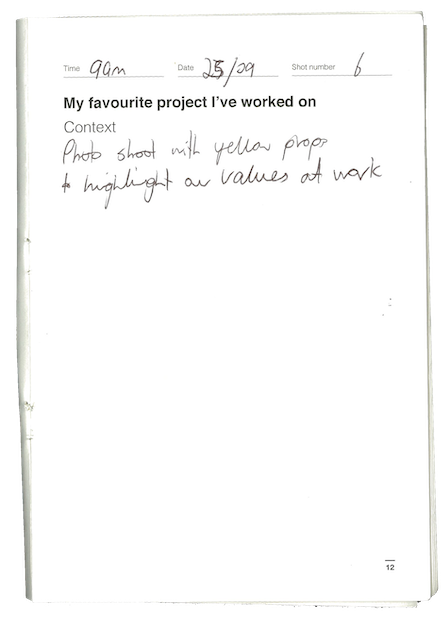 Time 9am Date 25/09 Shot number 6
My favourite project I've worked on
Context
Photo shoot with yellow props
to highlight our values at work
12